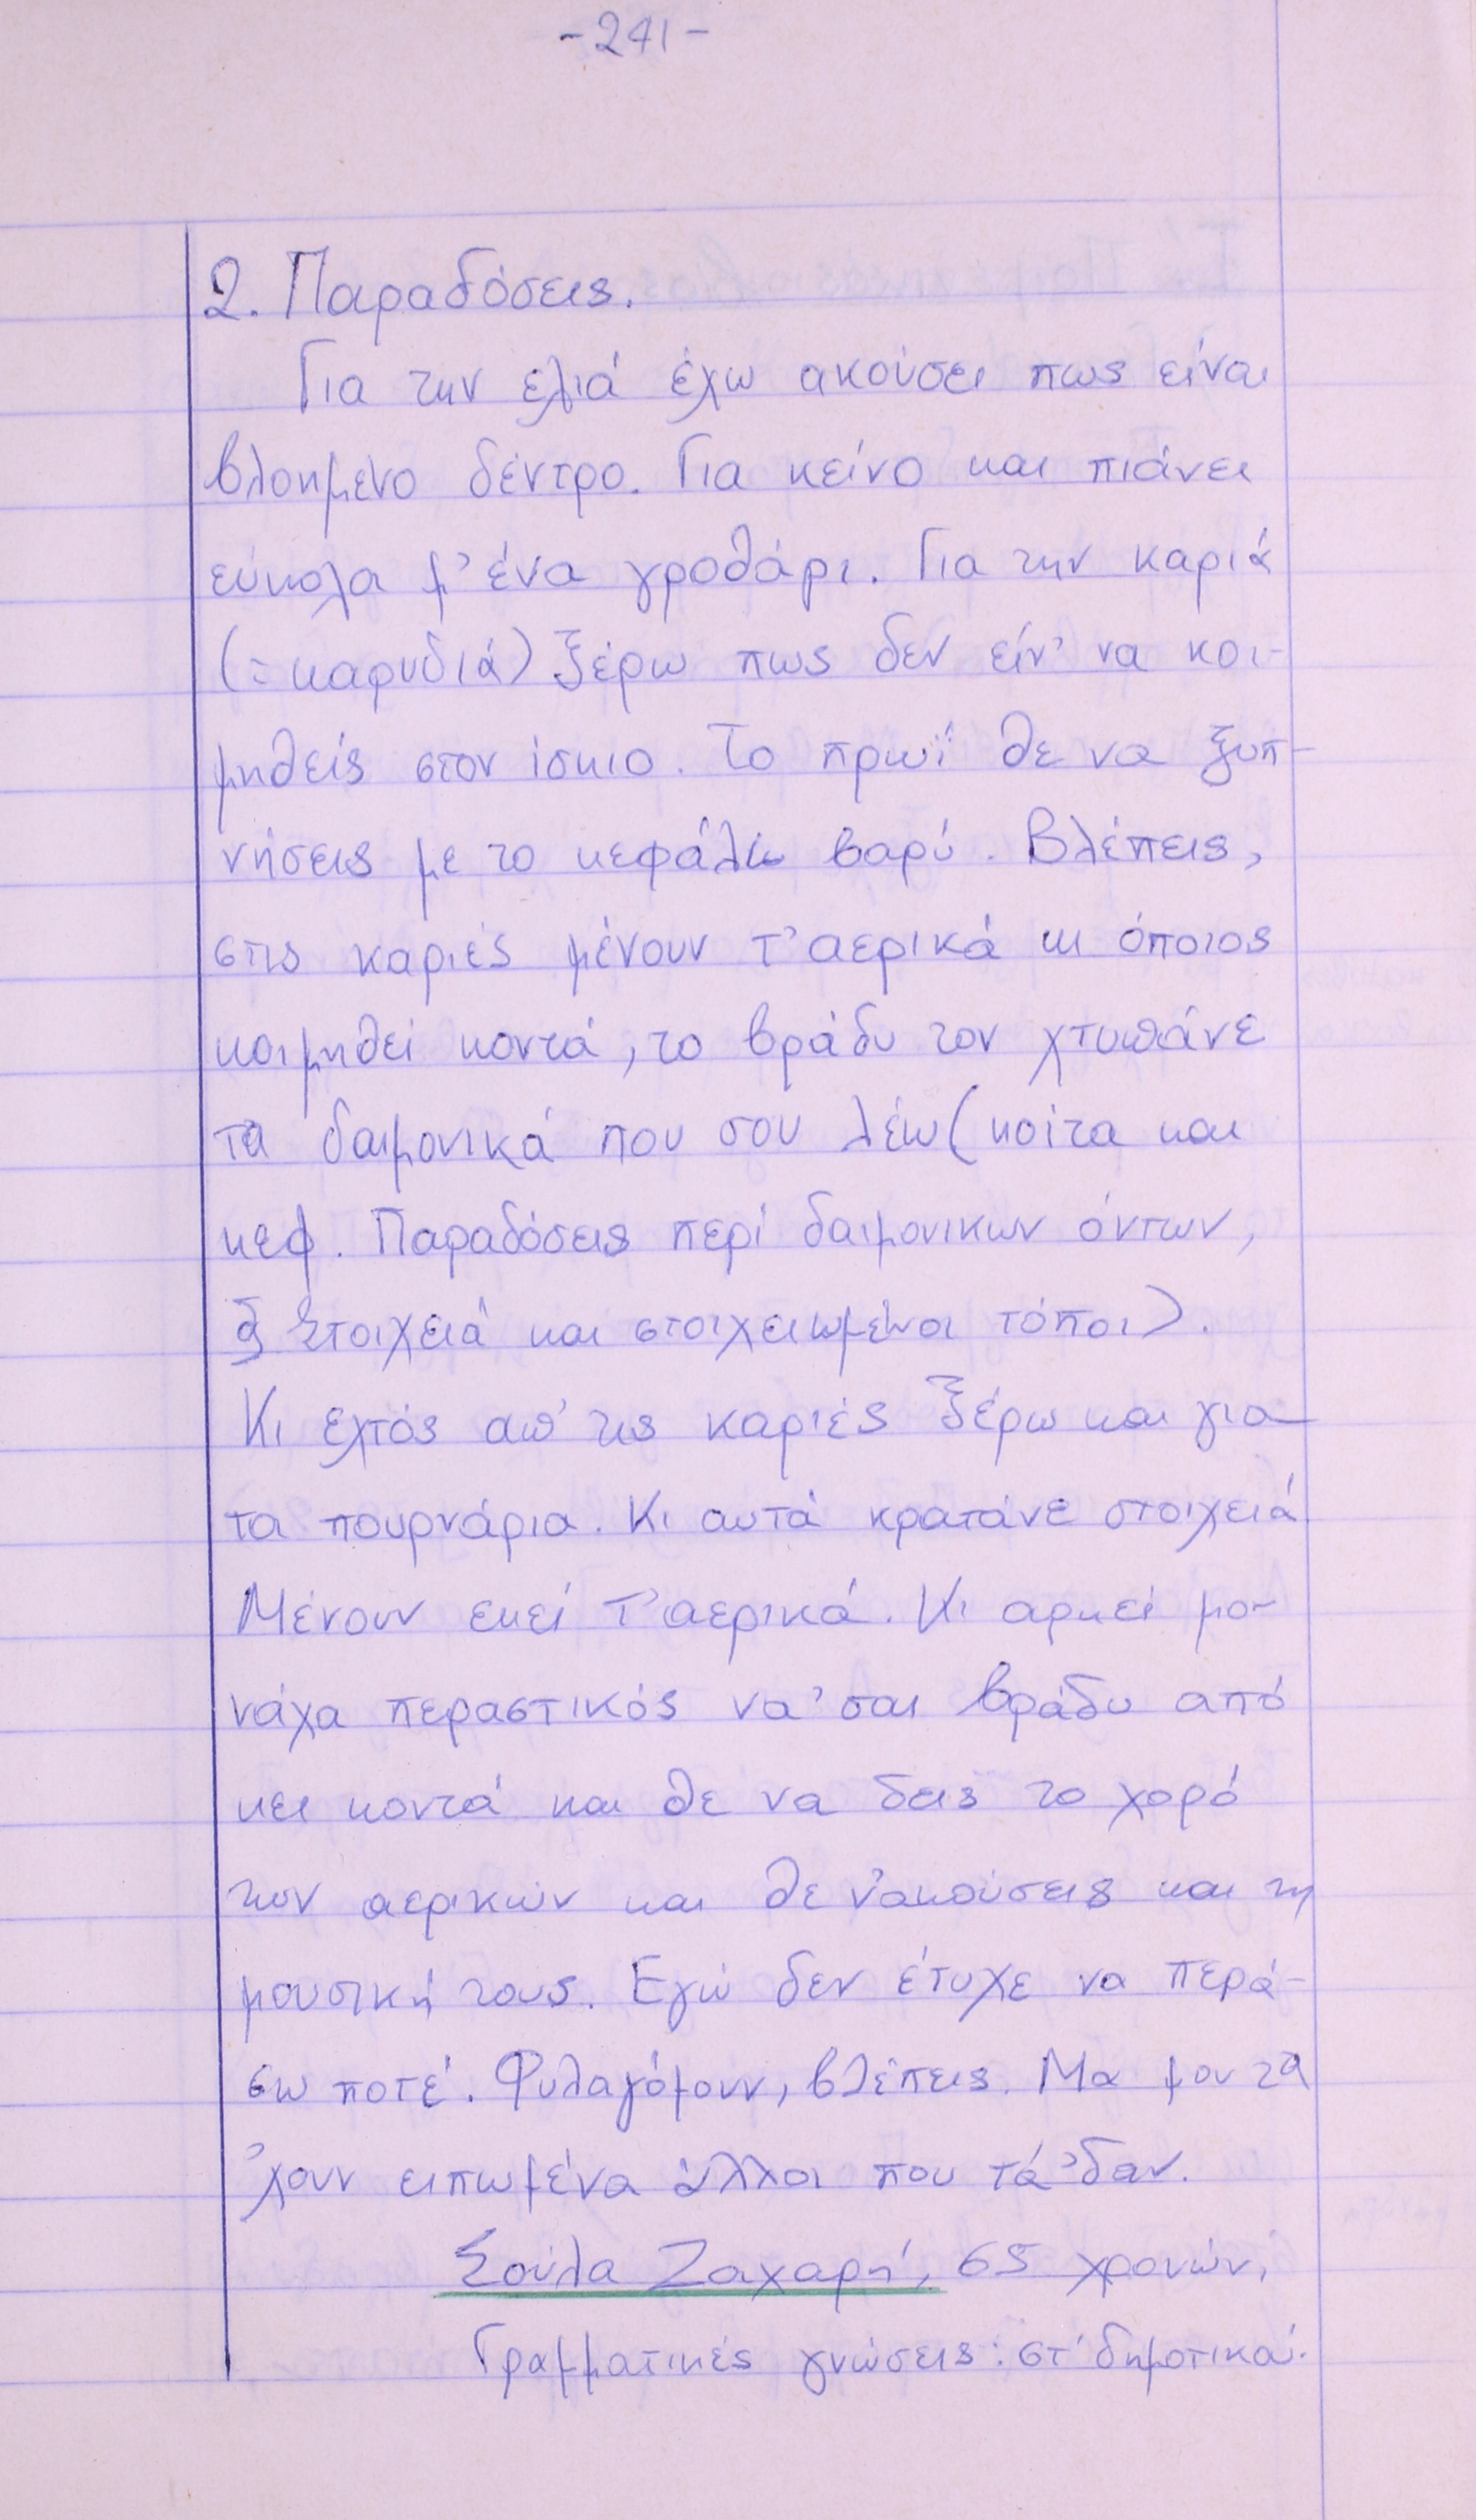 -241-
2. Παραδόσεις.
Για την ελιά έχω ακούσει πως είναι
βλοημένο δέντρο. Για κείνο και πιάνει
εύκολα μ' ένα γροθάρι. Για την καριά
(= καρυδιά) ξέρω πως δεν είν' να κοι-
μηθείς στον ίσκιο. Το πρωί θε να ξυπ-
νήσεις με το κεφάλι βαρύ. Βλέπεις,
στις καριές μένουν τ' αερικά κι όποιος
κοιμηθεί κοντά, το βράδυ τον χτυπάνε
τα δαιμονικά που σου λέω (κοίτα και
κεφ. Παραδόσεις περί δαιμονικων όντων,
§ Στοιχειά και στοιχειωμένοι τόποι).
Κι εχτός απ' τις καριές ξέρω και για
τα πουρνάρια. Κι αυτά κρατάνε στοιχειά
Μένουν εκεί τ' αερικά. Κι αρκεί μο-
νάχα περαστικός να 'σαι βράδυ από
κει κοντά και θε να δεις το χορό
των αερικών και θε ν' ακούσεις και τη
μουσική τους. Εγώ δεν έτυχε να περά-
σω ποτέ. Φυλαγόμουν, βλέπεις. Μα μου τα
'χουν ειπωμένα άλλοι που τά 'δαν.
Σούλα Ζαχαρή, 65 χρονών,
Γραμματικές γνώσεις: στ' δημοτικού.